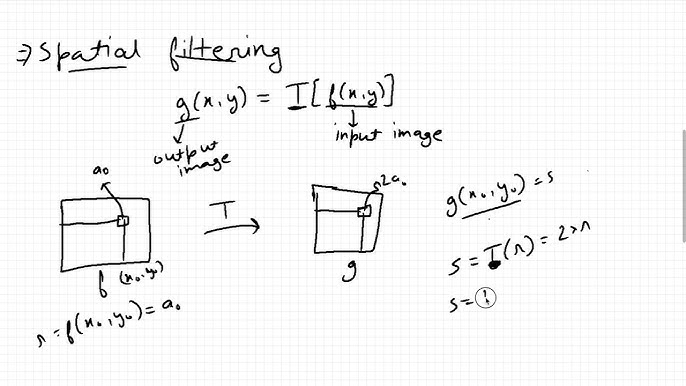 ⇒ Spatial filtering
g(x,y) = T[f(x,y)]
output image
input image
a₀
T
2a₀
(x₀,y₀)
f
g
r = f(x₀,y₀) = a₀
g(x₀,y₀) = s
s = T(r) = 2×r
s =